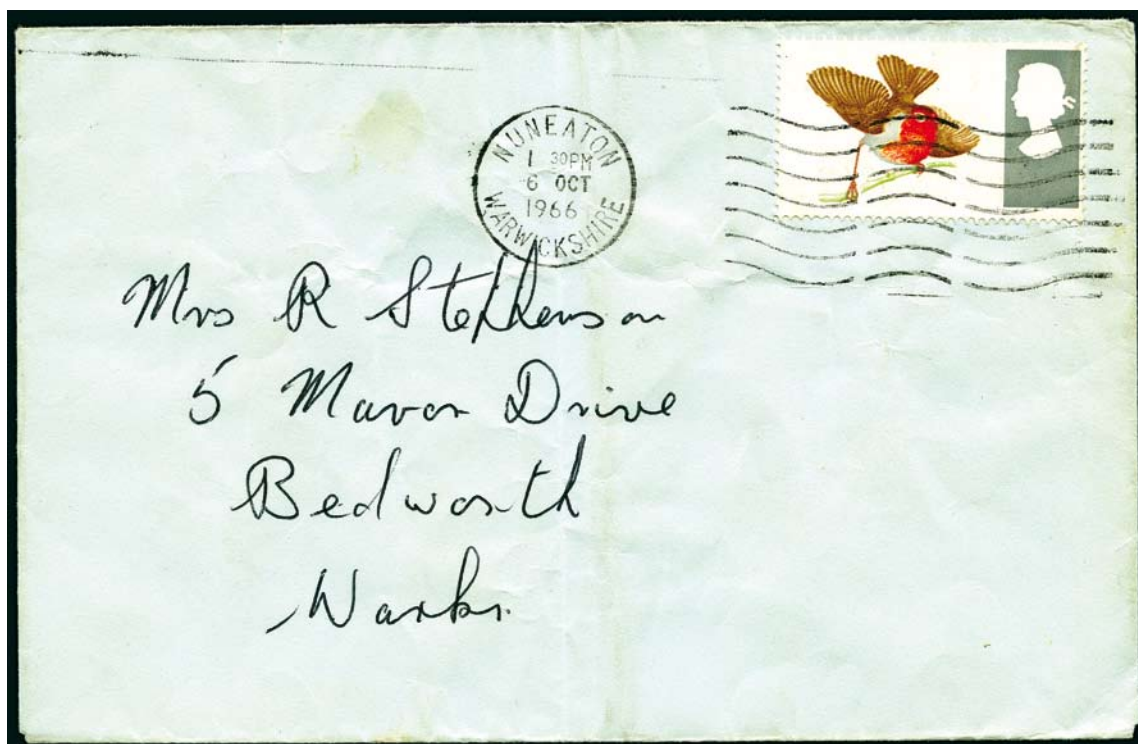 NUNEATON
1 30PM
6 OCT
1966
WARWICKSHIRE
Mrs R Stephenson
5 Mavor Drive
Bedworth
Warks.